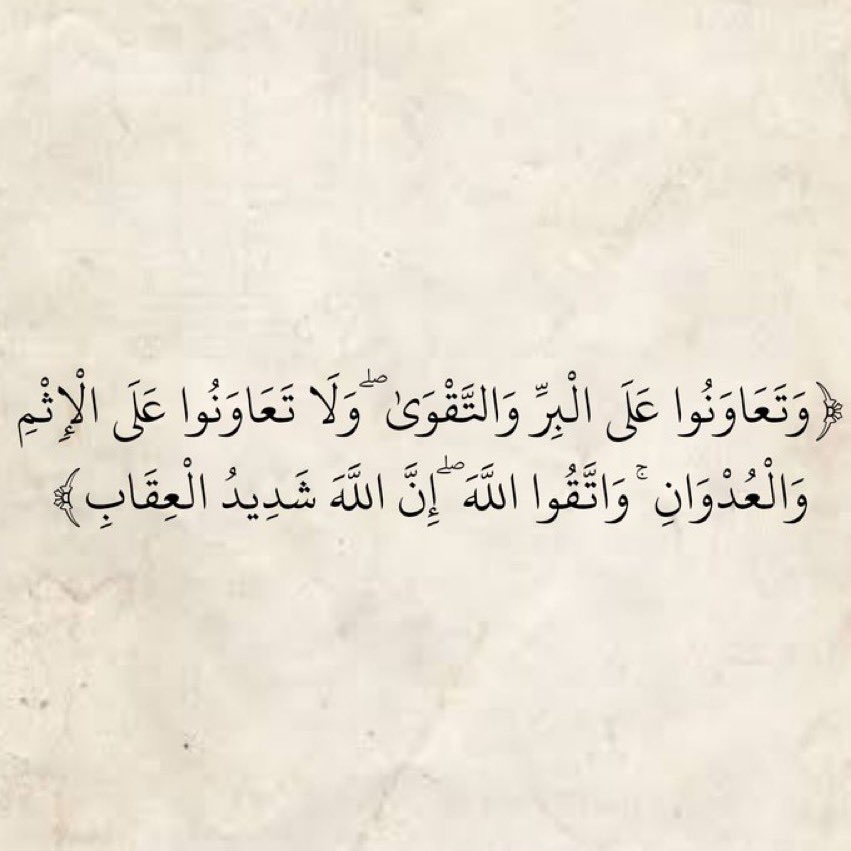 ﴿وَتَعَاوَنُوا عَلَى الْبِرِّ وَالتَّقْوَىٰ ۖ وَلَا تَعَاوَنُوا عَلَى الْإِثْمِ
وَالْعُدْوَانِ ۚ وَاتَّقُوا اللَّهَ ۖ إِنَّ اللَّهَ شَدِيدُ الْعِقَابِ﴾